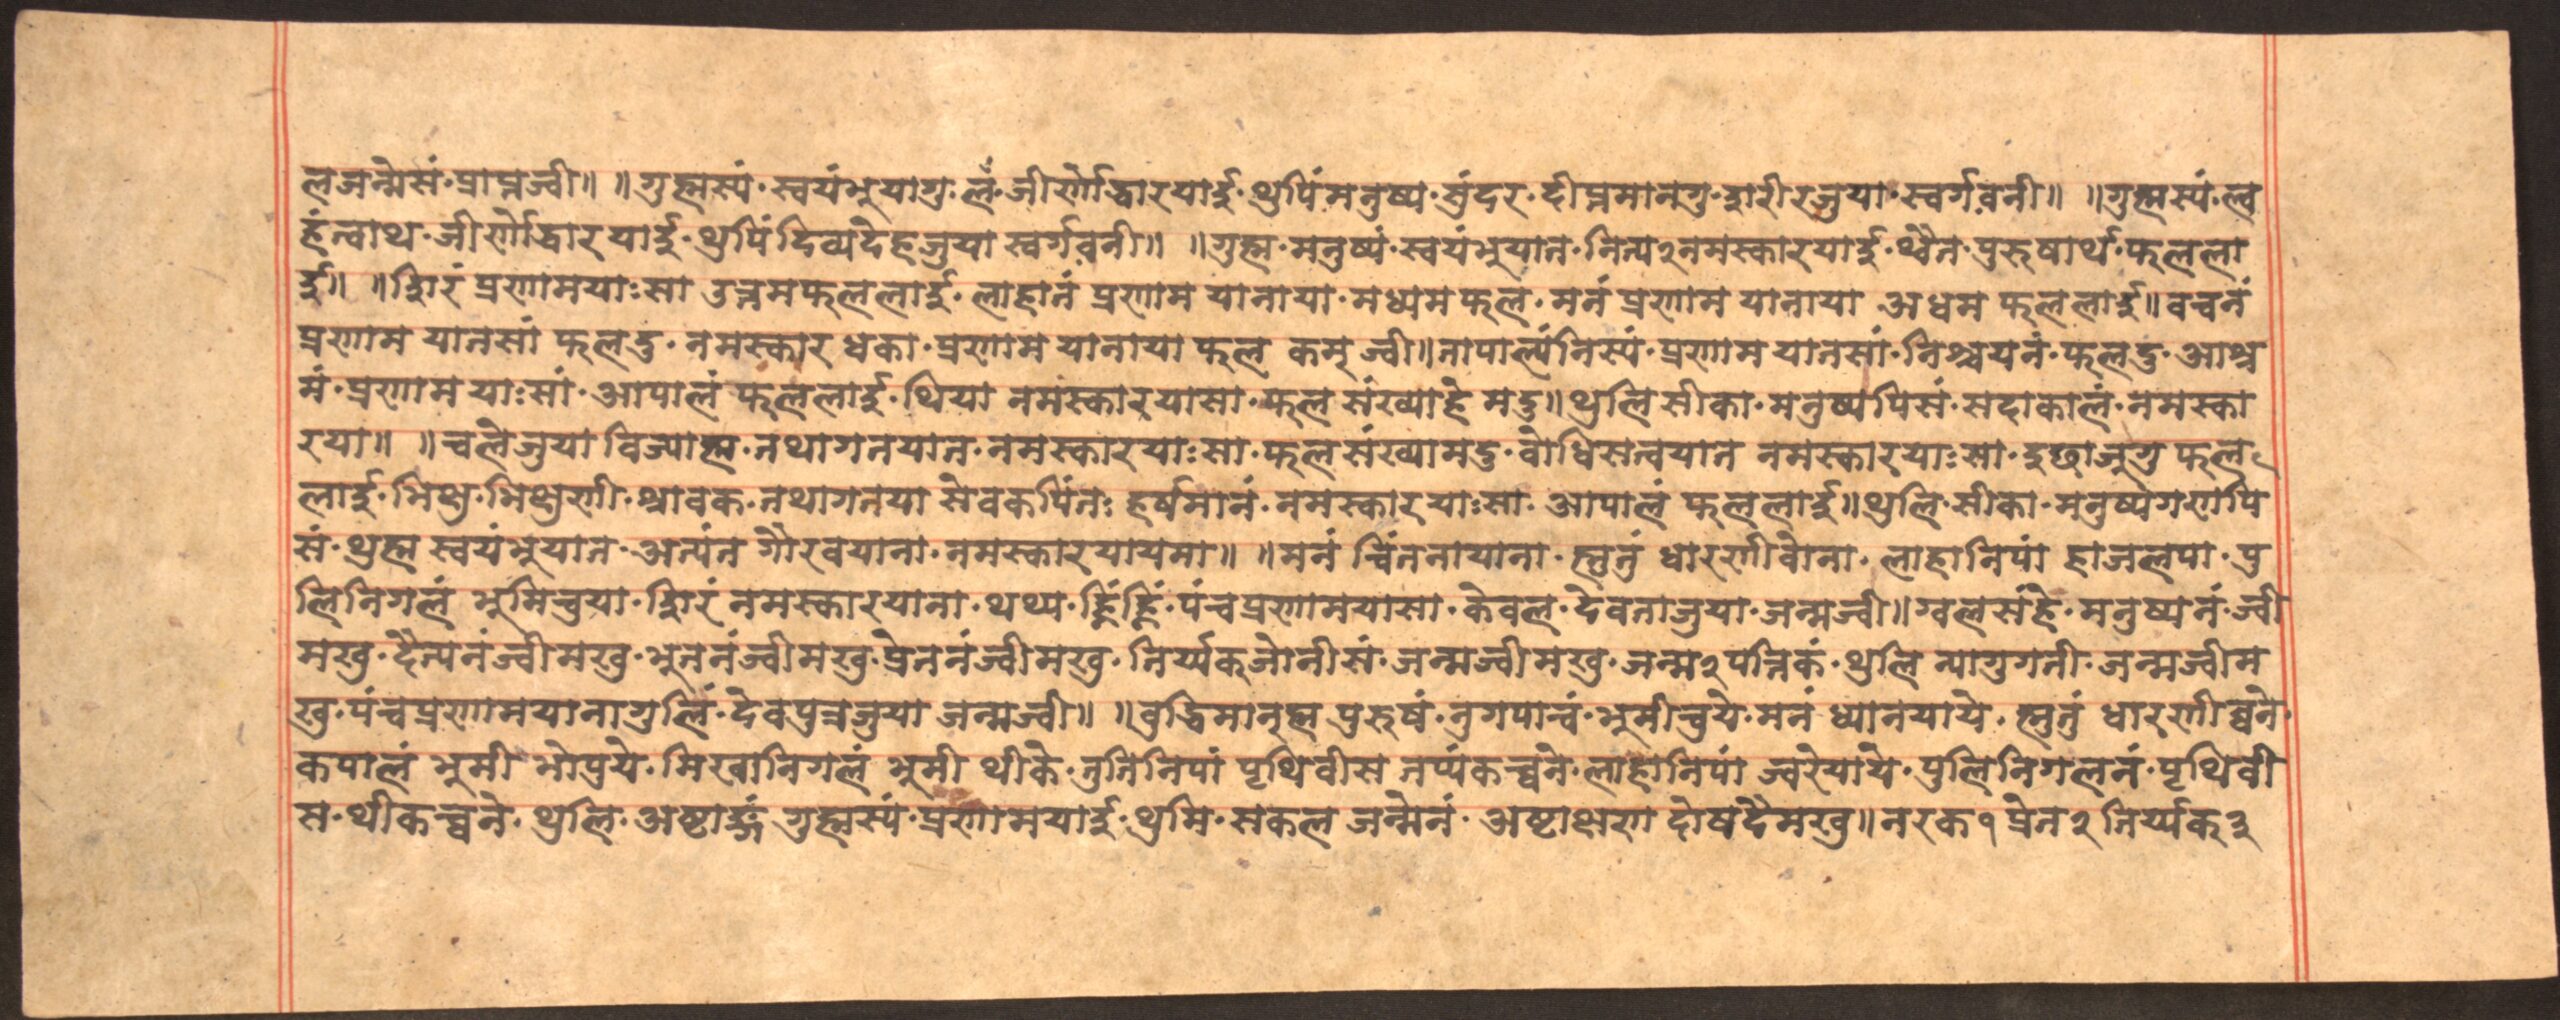 लजन्मेसं·प्राप्तज्वी॥ ॥गुह्मस्यं·स्वयंभुयागु·लं·जीर्णोद्धारयाईु·थुपिंमनुष्य·सुंदर·दीप्तमानगु·शरीरजुया·स्वर्गवनी॥ ॥गुह्मस्यं·ल्व
हंत्वाथ·जीर्णोद्धारयाईु·थुपिं दिव्यदेहजुया स्वर्गवनी॥ ॥गुह्म·मनुष्यं·स्वयंभुयात·नित्य२नमस्कारयाईु·थ्वैत·पुरुषार्थ·फलला
ईु॥ ॥शिरं प्रणामयाःसा उत्तमफललाईु·लाहातं प्रणाम यानाया·मध्यमफल·मनं प्रणाम यानाया अधम फललाईु॥वचनं
प्रणाम यातसां फलदु·नमस्कार धका·प्रणाम यानाया फल कमज्वी॥नापाल्यंनिस्यं·प्रणाम यातसां·निश्चयनं·फलदु·आश्र
मं·प्रणाम याःसां·आपालं फललाईु·थिया नमस्कारयासा·फल संख्याहे मदु॥थुलि सीका·मनुष्यपिसं·सदाकालं·नमस्का
रया॥ ॥चलेजुया विज्याह्म·तथागतयात·नमस्कारयाःसा·फलसंख्यामदु·बोधिसत्वयात नमस्कारयाःसा·दुछाजुगु फल
लाईु·भिक्षु·भिक्षुणी·श्रावक·तथागतया सेवकपिंतः हर्षमानं·नमस्कारयाःसा·आपालं फललाईु॥थुलि·सीका·मनुष्यगणपि
सं·थुह्म स्वयंभुयात·अत्यंत गौरवयाना·नमस्कारयायमा॥ ॥मनं चिंतनायाना·ह्मुतुं धारणीवोना·लाहानिपां हाजलपा·पु
लिनिगलं भुमिचुया·शिरं नमस्कारयाना·थथ्य·ह्निंह्निं·पंचप्रणामयासा·केवल·देवताजुया·जन्मज्वी॥ग्वलसंहे·मनुष्यनं·ज्वी
मखु·दैत्यनंज्वीमखु·भुतनंज्वीमखु·प्रेतनंज्वीमखु·तिर्य्यकजोनीसं·जन्मज्वीमखु·जन्म२पत्तिकं·थुलि न्यागुगती·जन्मज्वीम
खु·पंचप्रणामयानागुलिं·देवपुत्रजुया जन्मज्वी॥ ॥बुद्धिमानुह्म पुरुषं·नुगपाचं·भुमीचुये·मनं ध्यानयाये·ह्मुतुं धारणीब्वने·
कपालं भुमी भोपुये·मिखानिगलं भुमी थीके·तुतिनिपां पृथिवीस तप्यंकच्वने·लाहानिपां ज्वरेयाये·पुलिनिगलनं·पृथिवी
स·थीकच्वने·थुलि·अष्टाङ्गं गुह्मस्यं·प्रणामयाईु·थुमि·सकल जन्मेनं·अष्टाक्षण दोषदैमखु॥नरक१ प्रेत२ तिर्य्यक३